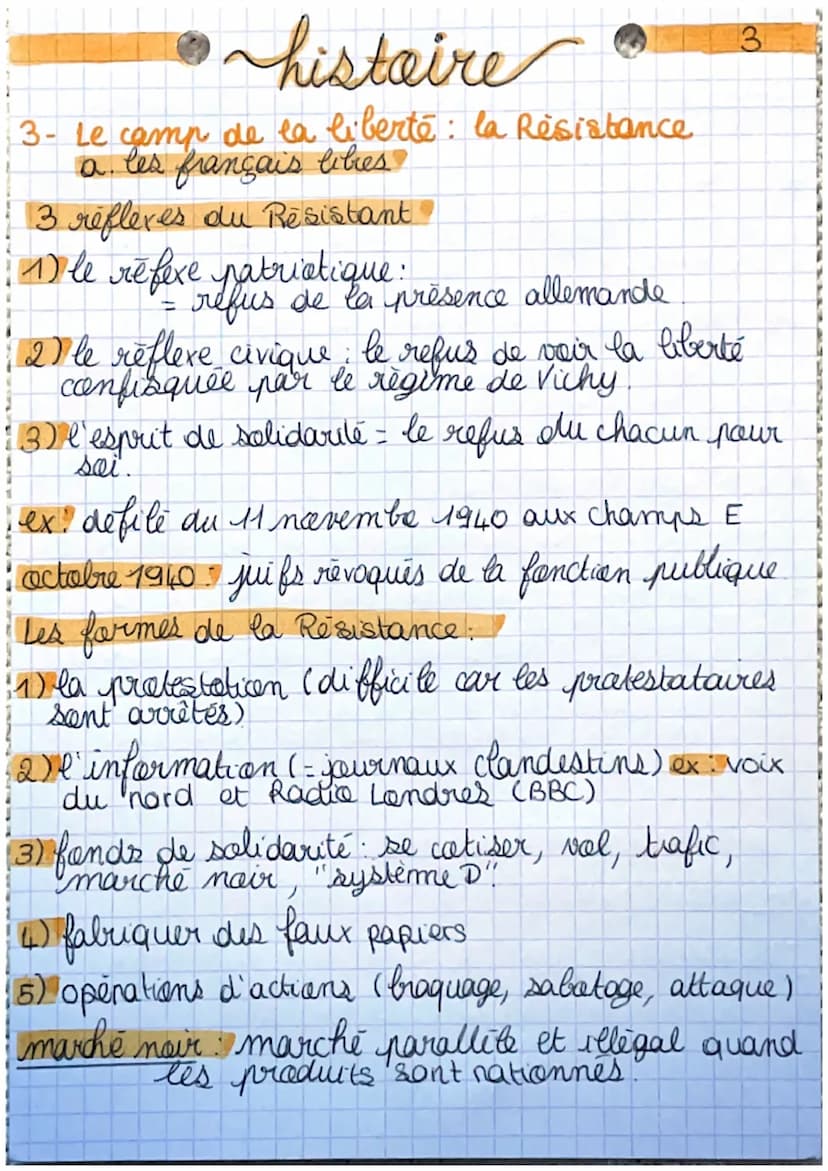 histoire
3
3- Le camp de la liberté : la Résistance
a. les français libres
3 réflexes du Résistant
1) le réfexe patriotique :
= refus de la présence allemande
2) le réflexe civique : le refus de voir la liberté
confisquée par le régime de Vichy.
3) l'esprit de solidarité = le refus du chacun pour
soi.
ex : défilé du 11 novembe 1940 aux champs E
octobre 1940 : juifs révoqués de la fonction publique
Les formes de la Résistance :
1) la protestation (difficile car les protestataires
sont arrêtés)
2) l'information (= journaux clandestins) ex : voix
du nord et Radio Londres (BBC)
3) fonds de solidarité : se cotiser, vol, trafic,
marché noir, "système D".
4) fabriquer des faux papiers
5) opérations d'actions (braquage, sabotage, attaque)
marché noir : marché parallèle et illégal quand
les produits sont rationnés.